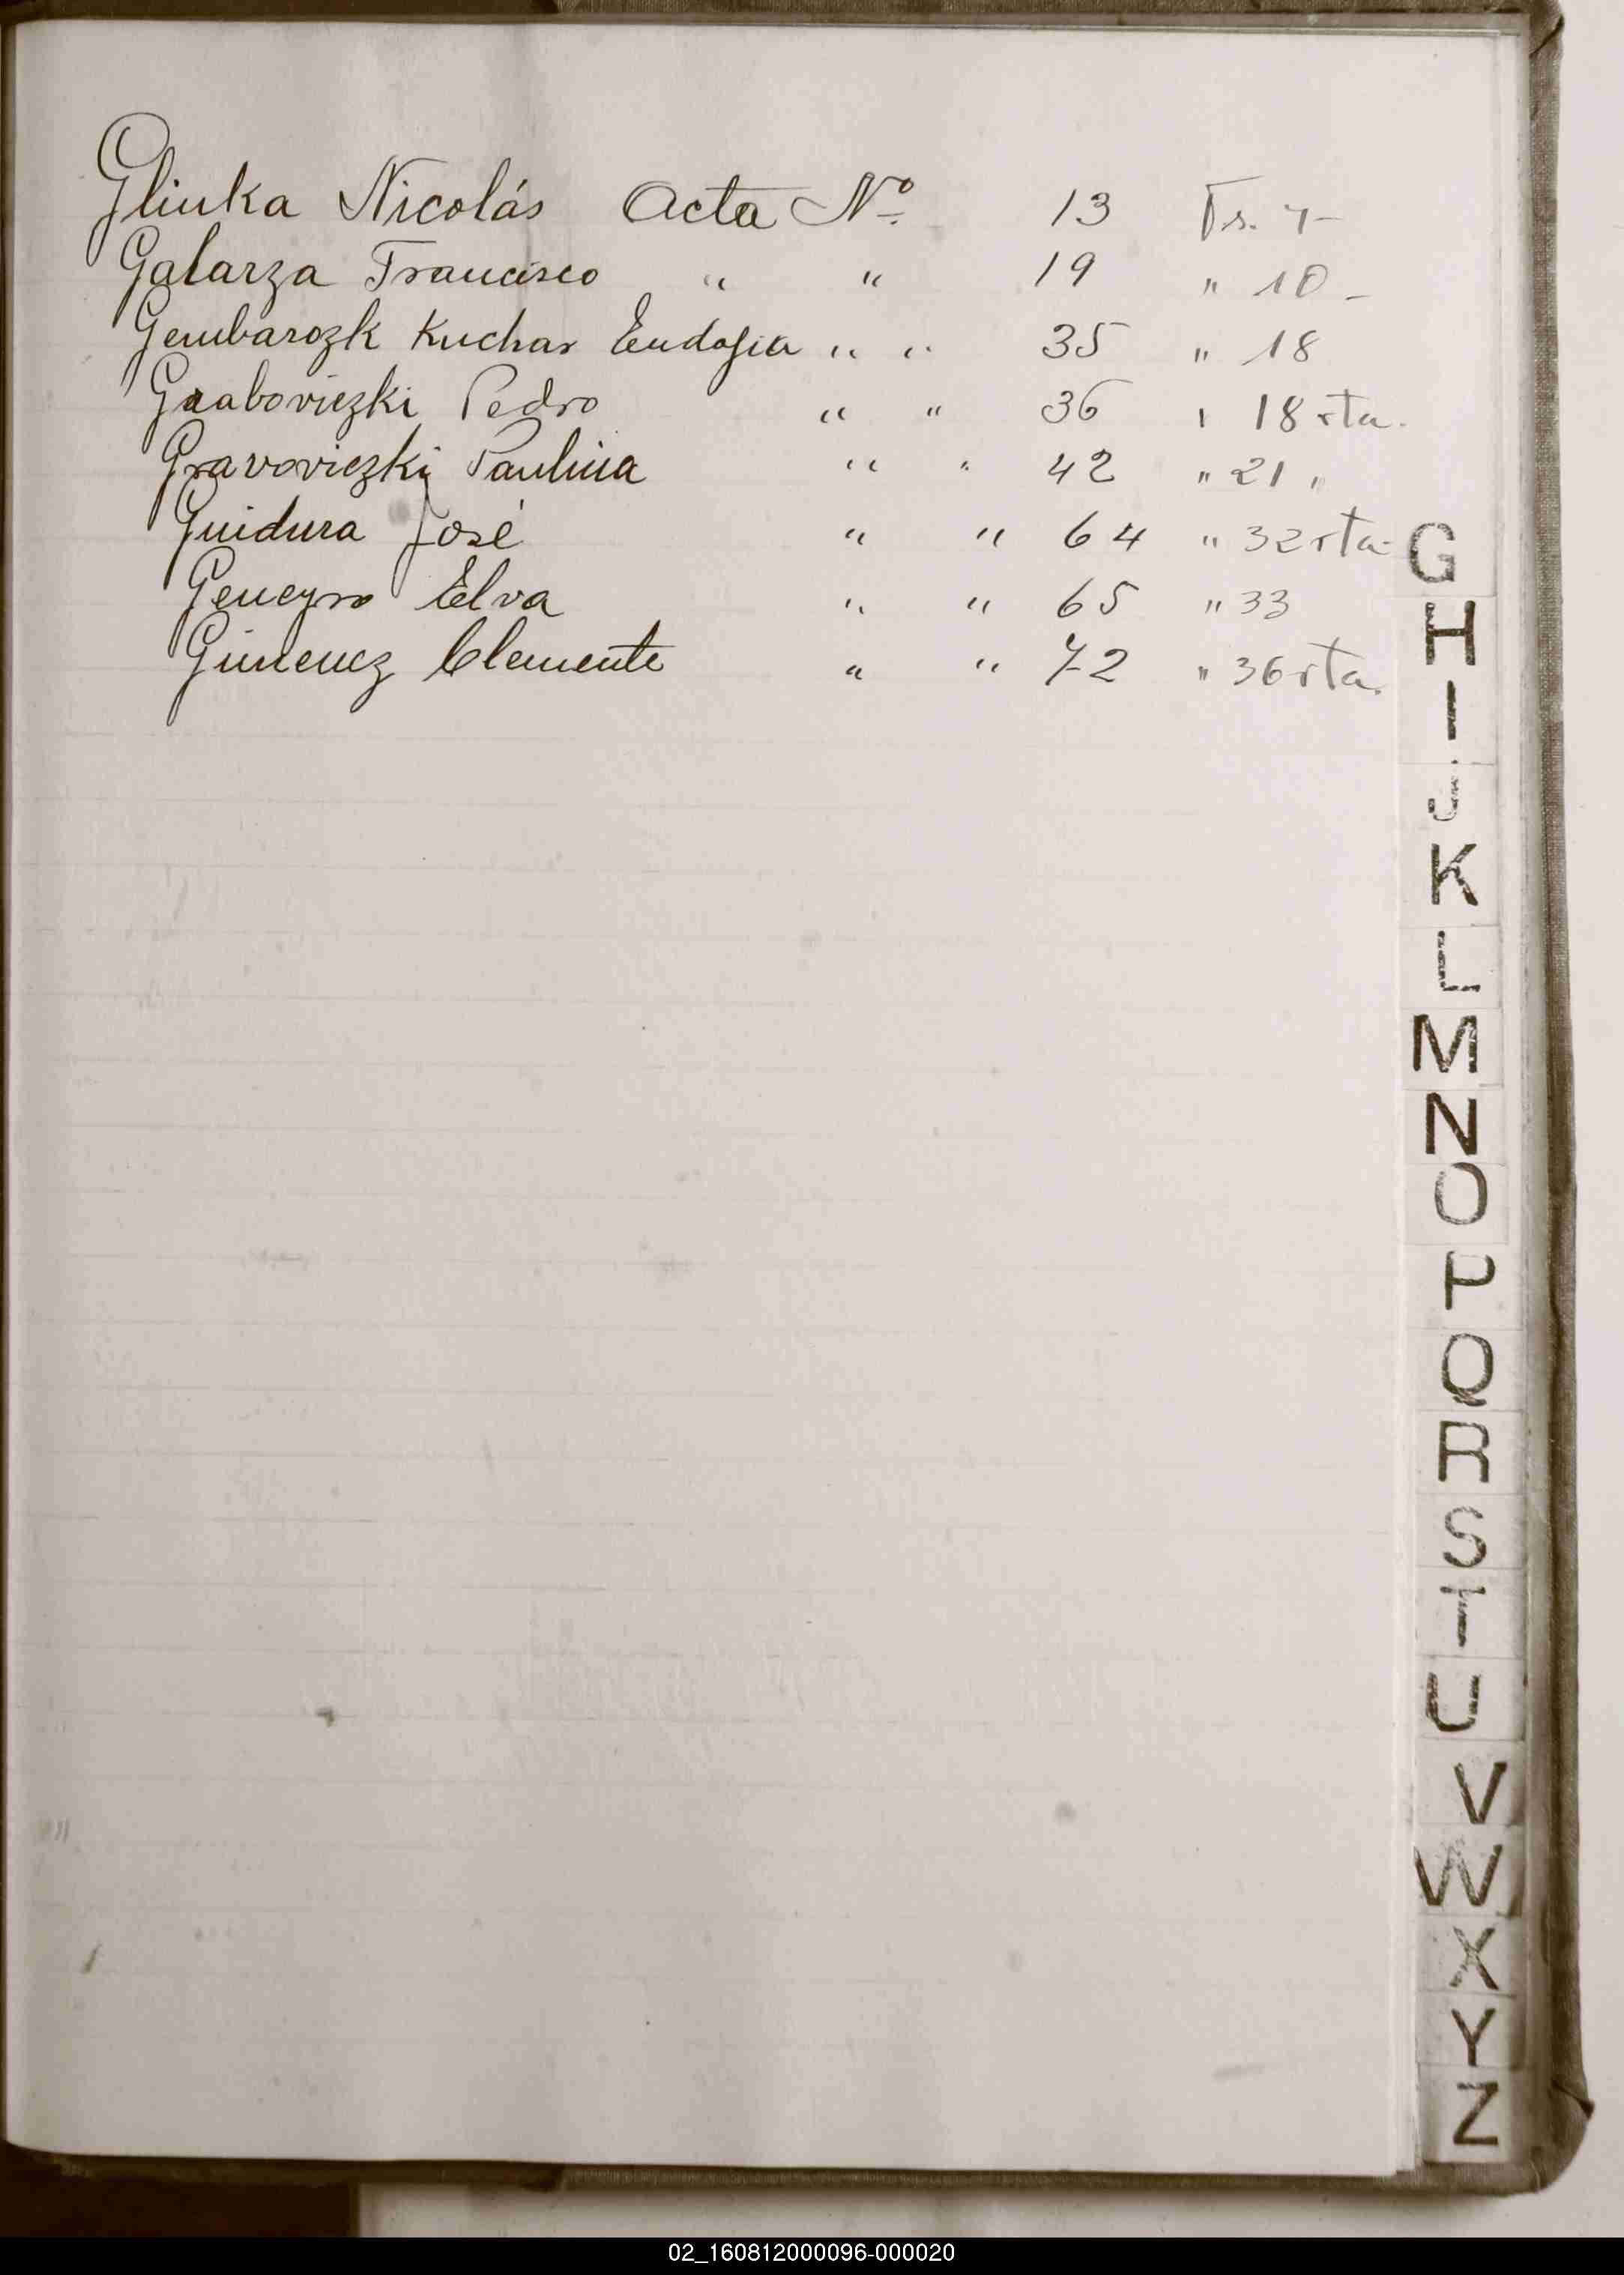 Glinka Nicolás Acta Nº 13 Fs. 7-
Galarza Francisco " " 19 " 10 -
Gembarozk Kuchar Eudosia " " 35 " 18
Graboviezki Pedro " " 36 " 18 vta.
Gravoviezki Paulina " " 42 " 21 "
Guidura José " " 64 " 32 vta-
Geneyro Elva " " 65 " 33
Gimenez Clemente " " 72 " 36 vta.
G
H
I
J
K
L
M
N
O
P
Q
R
S
T
U
V
W
X
Y
Z
02_160812000096-000020